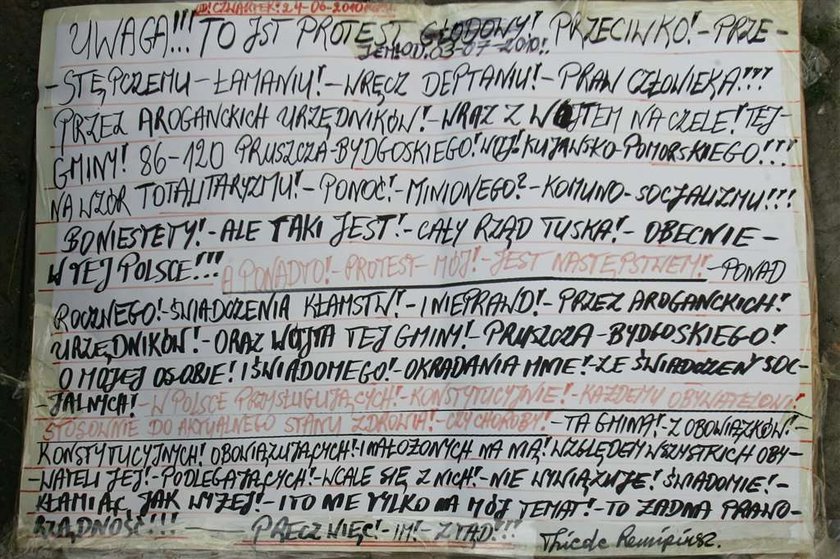 OD! CZWARTEK! 24-06-2010
UWAGA!!! TO JST PROTEST GŁODOWY! PRZECIWKO!-PRZE-
03-07-2010!
-STĘPCZEMU-ŁAMANIU!-WRĘCZ DEPTANIU!-PRAW CZŁOWIEKA!!!
PRZEZ AROGANCKICH URZĘDNIKÓW!-WRAZ Z WÓJTEM NA CZELE! TEJ-
GMINY! 86-120 PRUSZCZA-BYDGOSKIEGO! WOJ! KUJAWSKO-POMORSKIEGO!!!
NA WZÓR TOTALITARYZMU!-PONOĆ!-MINIONEGO?-KOMUNO-SOCJALIZMU!!!
BONIESTETY!-ALE TAKI JEST!-CAŁY RZĄD TUSKA!-OBECNIE-
W TEJ POLSCE!!! A PONADTO!-PROTEST-MÓJ!-JEST NASTĘPSTWEM!-PONAD
ROCZNEGO!-ŚWIADCZENIA KŁAMSTW!-I NIEPRAWD!-PRZEZ AROGANCKICH!
URZĘDNIKÓW!-ORAZ WÓJTA TEJ GMINY!-PRUSZCZA-BYDGOSKIEGO!
O MOJEJ OSOBIE! I ŚWIADOMEGO!-OKRADANIA MNIE!-ZE ŚWIADCZEŃ SOC-
-JALNYCH!-W POLSCE PRZYSŁUGUJĄCYCH!-KONSTYTUCYJNIE!-KAŻDEMU OBYWATELOWI!
STOSOWNIE DO AKTUALNEGO STANU ZDROWIA!-CZY CHOROBY!-TA GMINA!-Z OBOWIĄZKÓW!-
KONSTYTUCYJNYCH! OBOWIĄZUJĄCYCH! I NAŁOŻONYCH NA NIĄ! WZGLĘDEM WSZYSTKICH OBY-
-WATELI JEJ!-PODLEGAJĄCYCH!-WCALE SIĘ Z NICH!-NIE WYWIĄZUJE! ŚWIADOMIE!-
KŁAMIĄC JAK WYŻEJ!-I TO NIE TYLKO NA MÓJ TEMAT!-TO ŻADNA PRAWO-
RZĄDNOŚĆ!!!-PRECZ WIĘC!-IM!-Z TĄD!!!